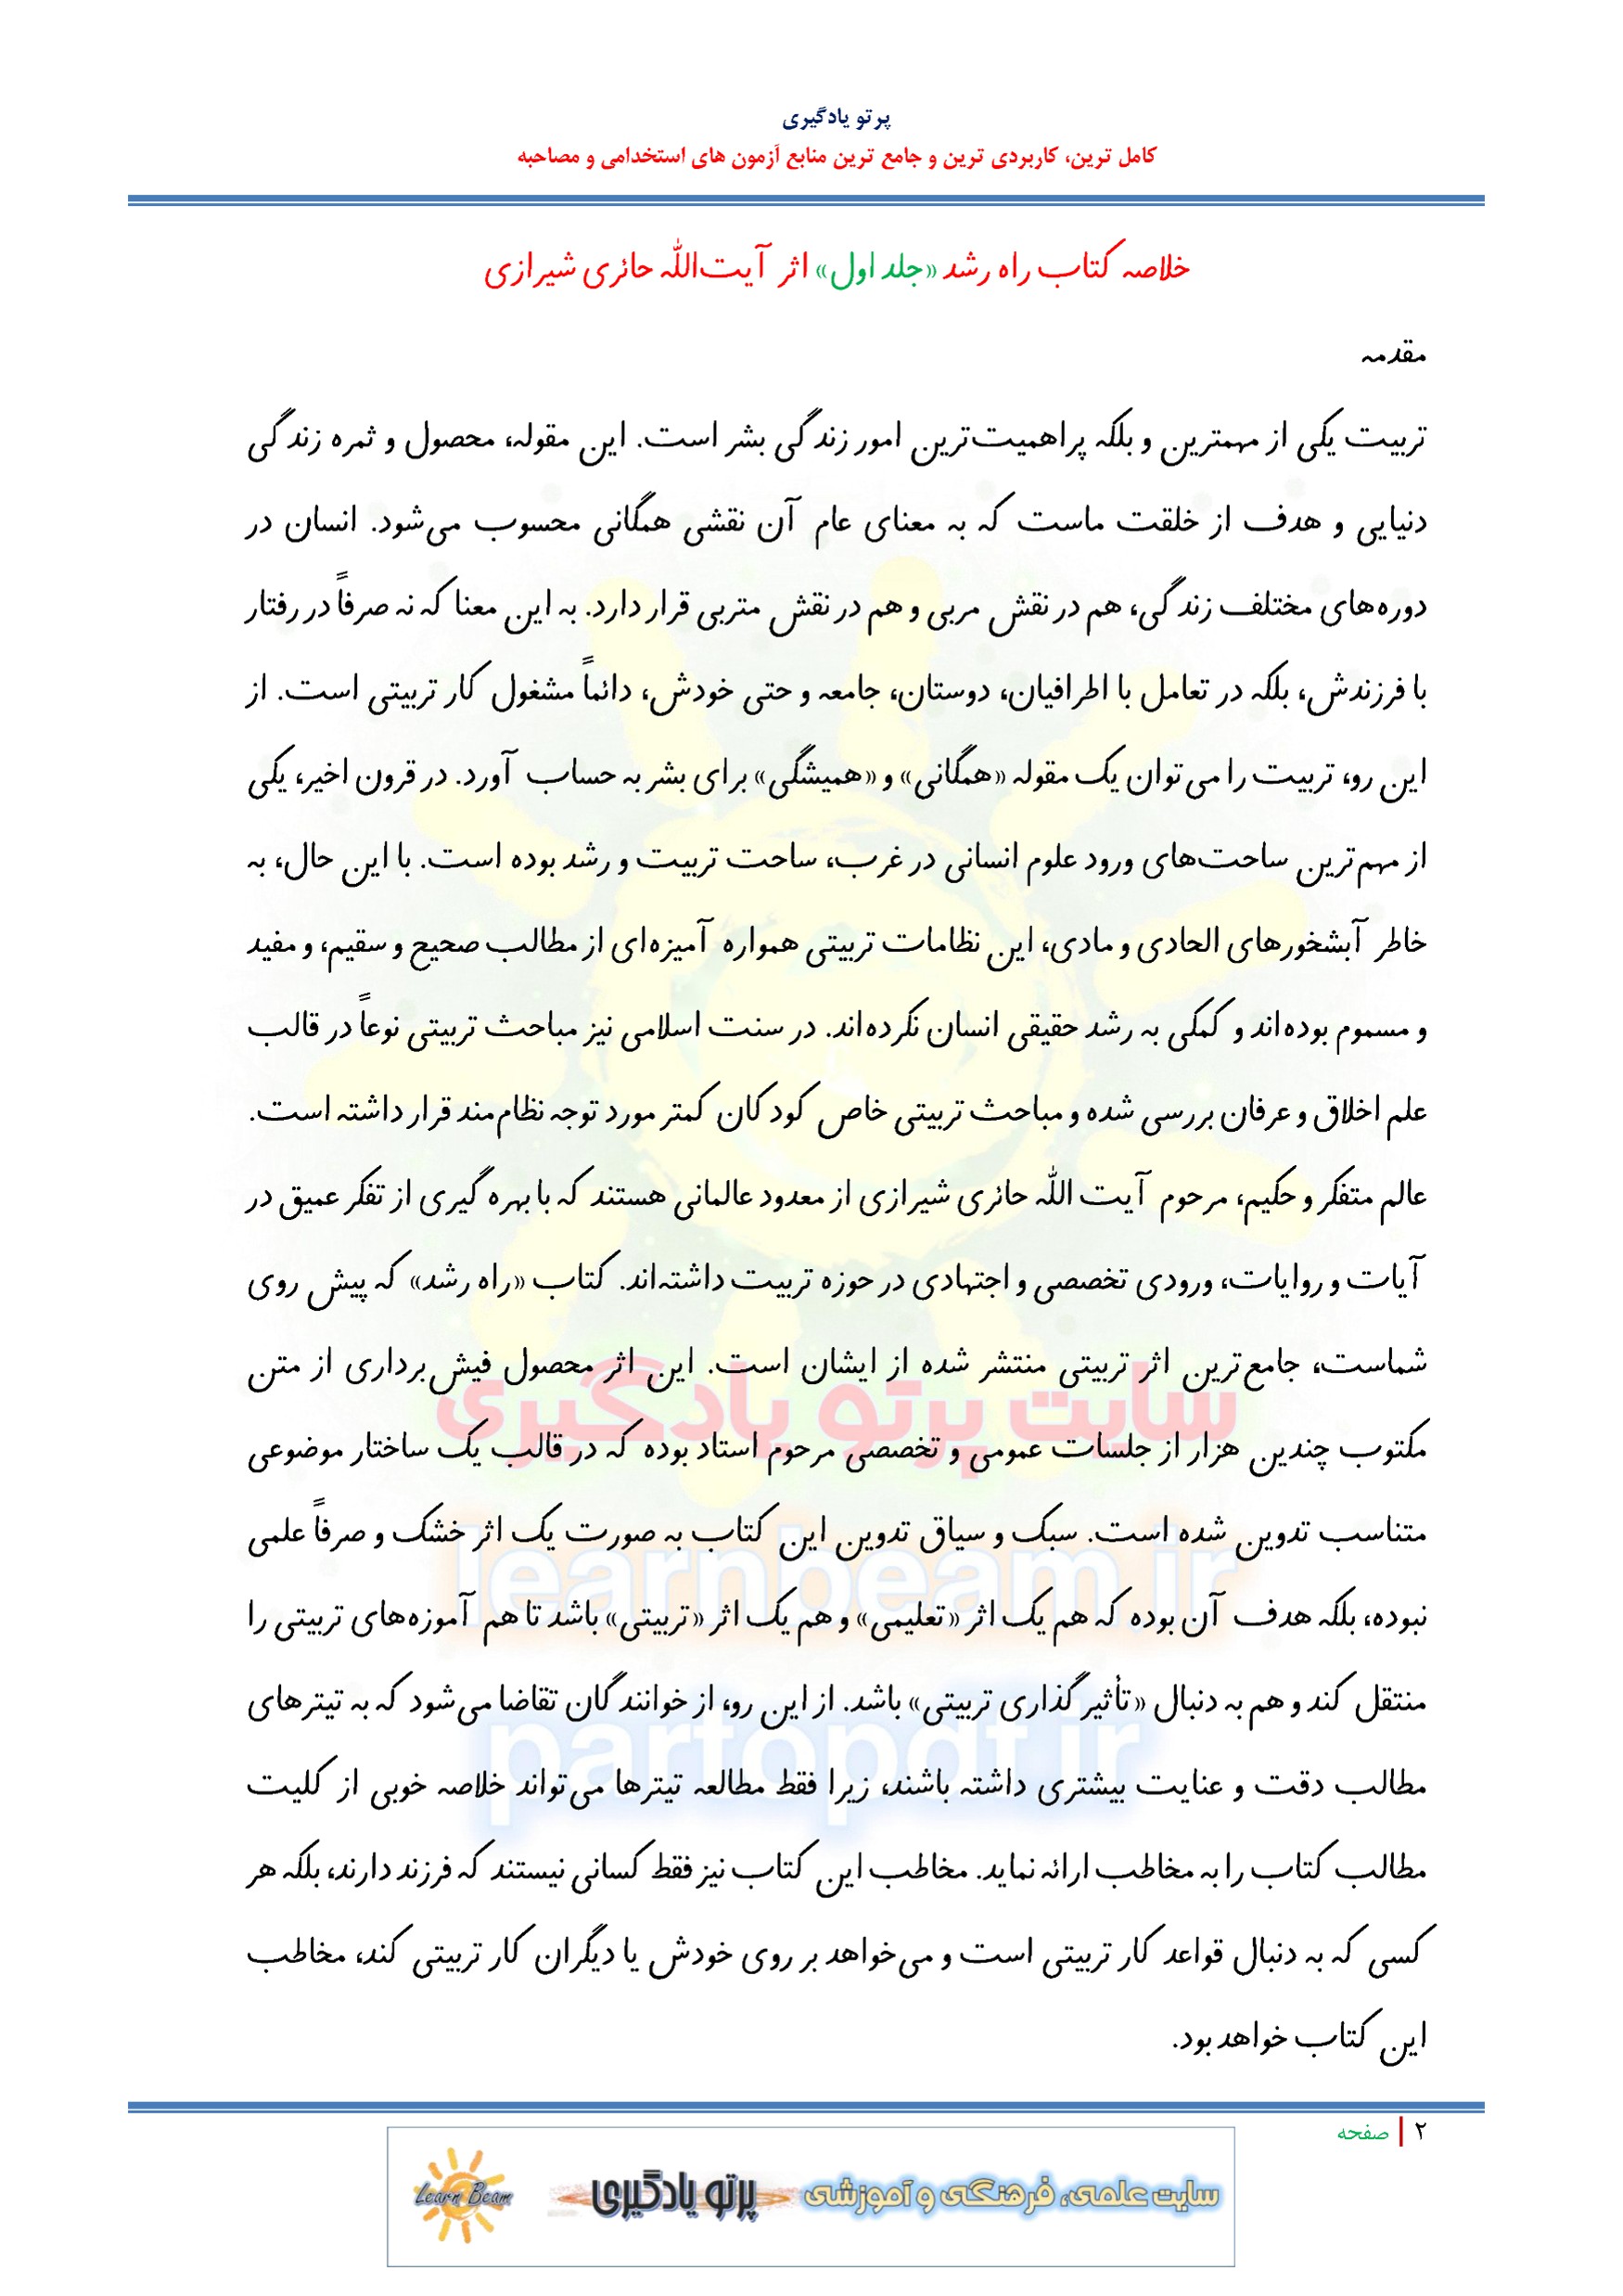 پرتو یادگیری
کامل ترین، کاربردی ترین و جامع ترین منابع آزمون های استخدامی و مصاحبه
خلاصه کتاب راه رشد «جلد اول» اثر آیت‌الله حائری شیرازی
مقدمه
تربیت یکی از مهمترین و بلکه پراهمیت‌ترین امور زندگی بشر است. این مقوله، محصول و ثمره زندگی
دنیایی و هدف از خلقت ماست که به معنای عام آن نقشی همگانی محسوب می‌شود. انسان در
دوره‌های مختلف زندگی، هم در نقش مربی و هم در نقش متربی قرار دارد. به این معنا که نه صرفاً در رفتار
با فرزندش، بلکه در تعامل با اطرافیان، دوستان، جامعه و حتی خودش، دائماً مشغول کار تربیتی است. از
این رو، تربیت را می‌توان یک مقوله «همگانی» و «همیشگی» برای بشر به حساب آورد. در قرون اخیر، یکی
از مهم‌ترین ساحت‌های ورود علوم انسانی در غرب، ساحت تربیت و رشد بوده است. با این حال، به
خاطر آبشخورهای الحادی و مادی، این نظامات تربیتی همواره آمیزه‌ای از مطالب صحیح و سقیم، و مفید
و مسموم بوده‌اند و کمکی به رشد حقیقی انسان نکرده‌اند. در سنت اسلامی نیز مباحث تربیتی نوعاً در قالب
علم اخلاق و عرفان بررسی شده و مباحث تربیتی خاص کودکان کمتر مورد توجه نظام‌مند قرار داشته است.
عالم متفکر و حکیم، مرحوم آیت الله حائری شیرازی از معدود عالمانی هستند که با بهره گیری از تفکر عمیق در
آیات و روایات، ورودی تخصصی و اجتهادی در حوزه تربیت داشته‌اند. کتاب «راه رشد» که پیش روی
شماست، جامع‌ترین اثر تربیتی منتشر شده از ایشان است. این اثر محصول فیش‌برداری از متن
مکتوب چندین هزار از جلسات عمومی و تخصصی مرحوم استاد بوده که در قالب یک ساختار موضوعی
متناسب تدوین شده است. سبک و سیاق تدوین این کتاب به صورت یک اثر خشک و صرفاً علمی
نبوده، بلکه هدف آن بوده که هم یک اثر «تعلیمی» و هم یک اثر «تربیتی» باشد تا هم آموزه‌های تربیتی را
منتقل کند و هم به دنبال «تأثیرگذاری تربیتی» باشد. از این رو، از خوانندگان تقاضا می‌شود که به تیترهای
مطالب دقت و عنایت بیشتری داشته باشند، زیرا فقط مطالعه تیترها می‌تواند خلاصه خوبی از کلیت
مطالب کتاب را به مخاطب ارائه نماید. مخاطب این کتاب نیز فقط کسانی نیستند که فرزند دارند، بلکه هر
کسی که به دنبال قواعد کار تربیتی است و می‌خواهد بر روی خودش یا دیگران کار تربیتی کند، مخاطب
این کتاب خواهد بود.
سایت پرتو یادگیری
learnbeam.ir
partopdf.ir
۲ | صفحه
سایت علمی، فرهنگی و آموزشی پرتو یادگیری Learn Beam